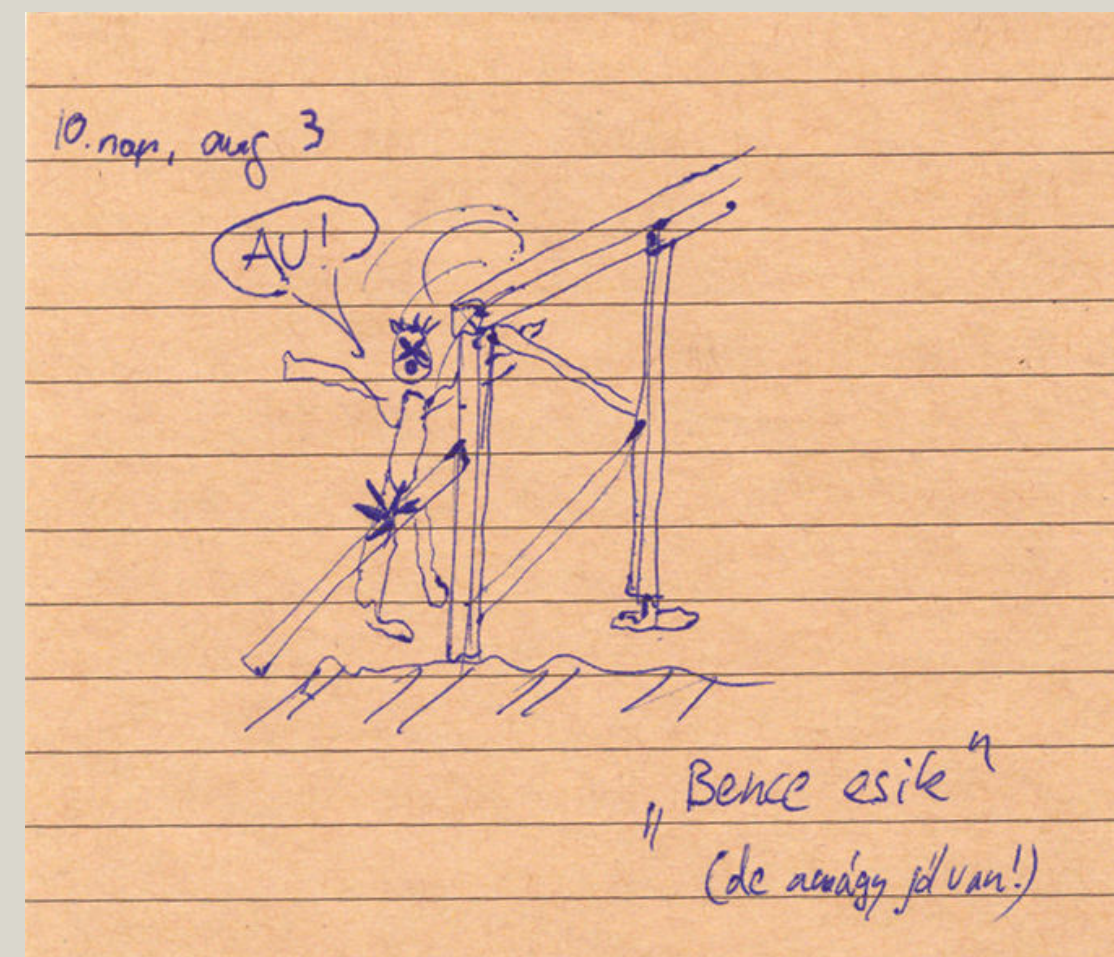 10. nap, aug 3
AU!
„Bence esik"
(de amúgy jól van!)